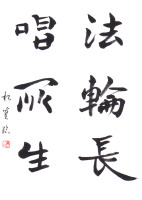 法輪長
唱眾生